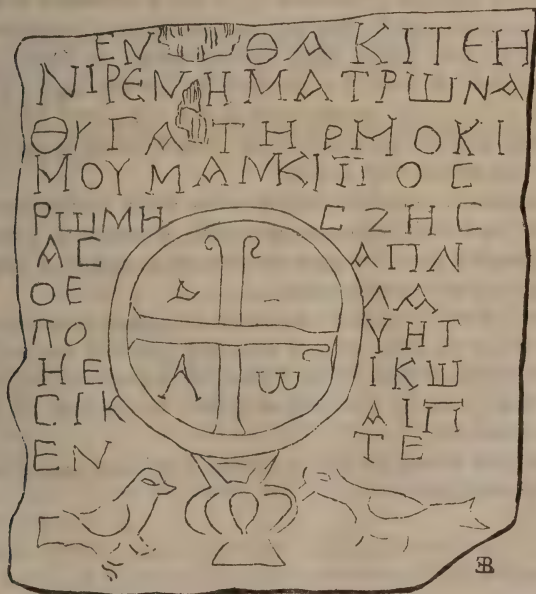 ΕΝ ΘΑΚΙΤΕΗ
ΝΙΡΕΝ ΗΜΑΤΡШΝΑ
ΘΥΓΑΤΗΡΜΟΚΙ
ΜΟΥΜΑΝΚΙΠΟC
ΡШΜΗ CΖΗC
ΑC ΑΠΝ
ΟΕ ΛΑ
ΠΟ ΥΗΤ
ΗΕ ΙΚШ
CΙΚ ΑΙΠ
ΕΝ ΤΕ
Α ω